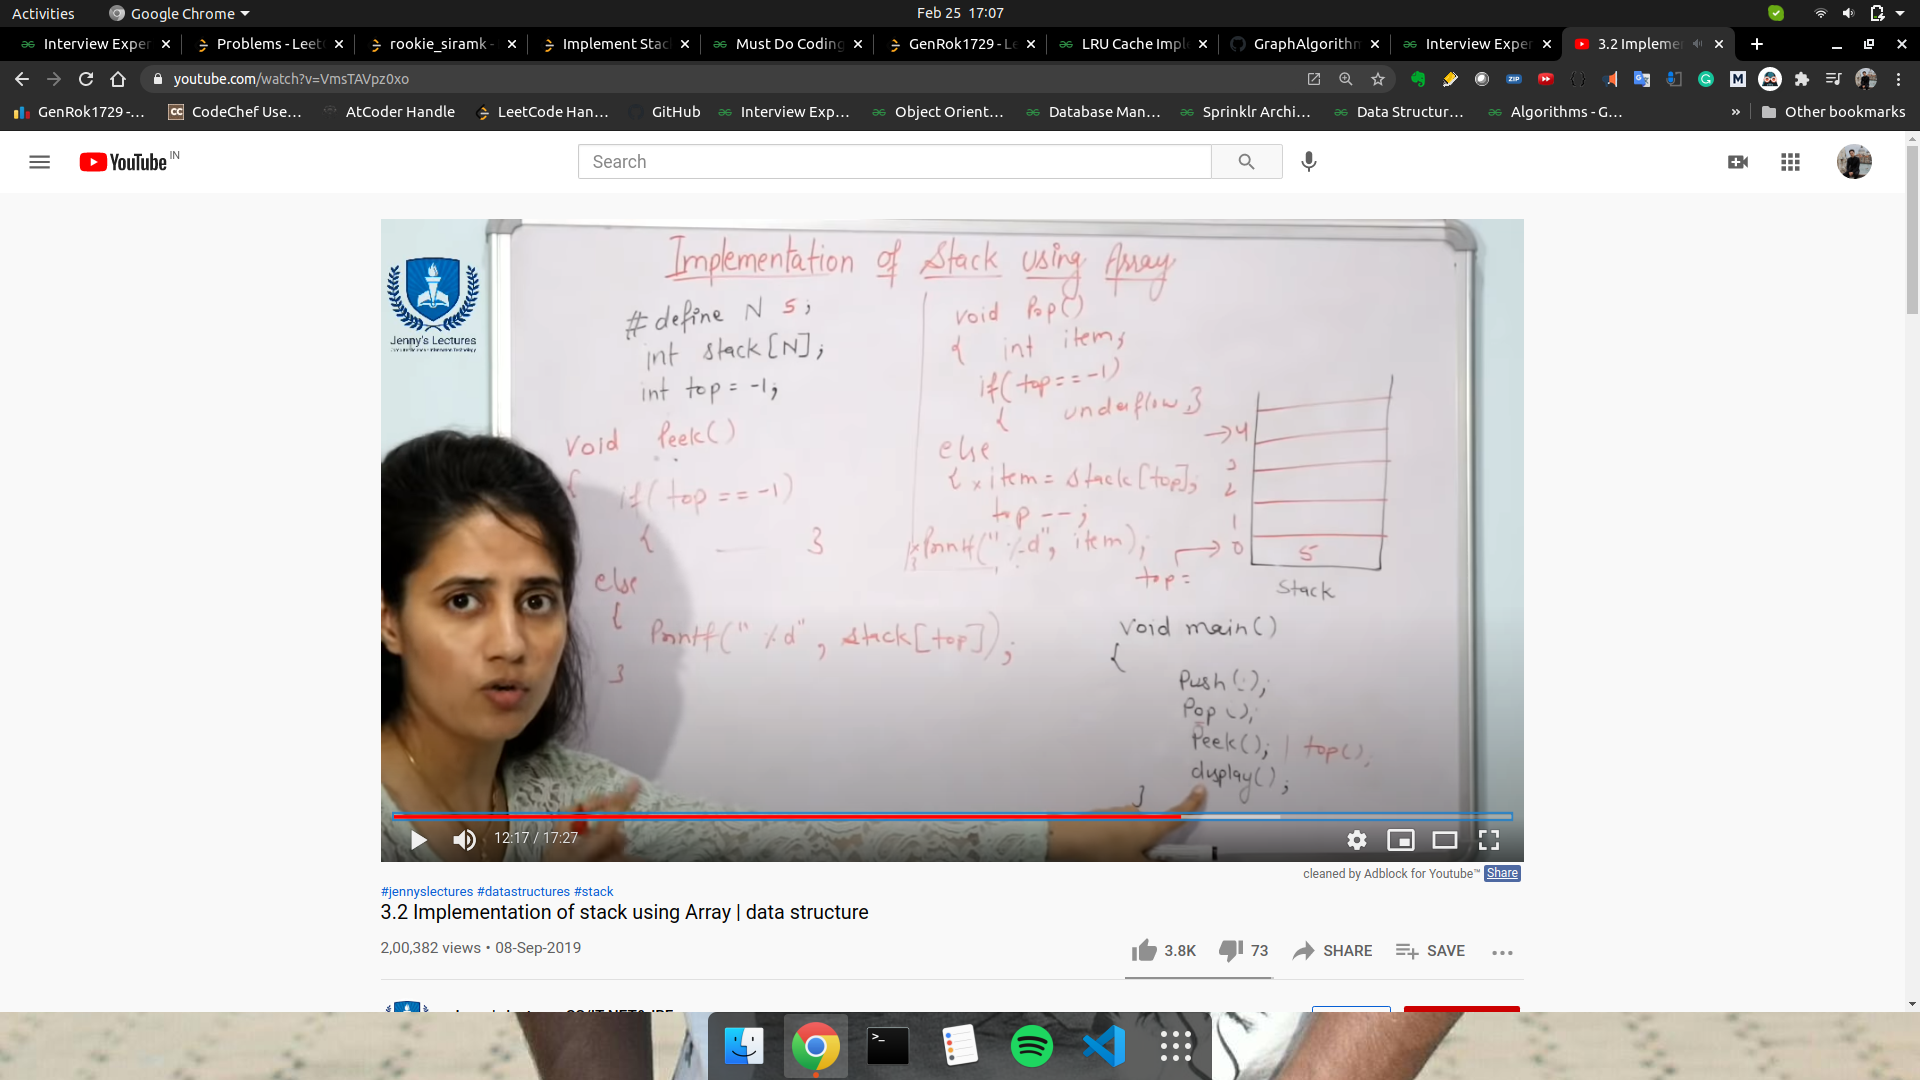 Activities
Google Chrome
Feb 25 17:07
Interview Exper
Problems - Leet
rookie_siramk -
Implement Stac
Must Do Coding
GenRok1729 - Le
LRU Cache Impl
GraphAlgorithm
Interview Exper
3.2 Implemen
youtube.com/watch?v=VmsTAVpz0xo
GenRok1729 -...
CodeChef Use...
AtCoder Handle
LeetCode Han...
GitHub
Interview Exp...
Object Orient...
Database Man...
Sprinklr Archi...
Data Structur...
Algorithms - G...
» Other bookmarks
YouTube IN
Search
Implementation of Stack using Array
Jenny's Lectures
# define N 5;
int stack[N];
int top = -1;
void Peek()
{ if( top == -1)
{ }
else
{
Printf("%d", stack[top]);
}
void Pop()
{ int item;
if( top == -1)
{ underflow }
else
{ item = stack[top];
top --;
Printf("%d", item);
}
top =
→ 4
3
2
1
0
5
Stack
void main()
{
Push();
Pop();
Peek(); | top();
display();
}
12:17 / 17:27
cleaned by Adblock for Youtube™ Share
#jennyslectures #datastructures #stack
3.2 Implementation of stack using Array | data structure
2,00,382 views • 08-Sep-2019
3.8K
73
SHARE
SAVE